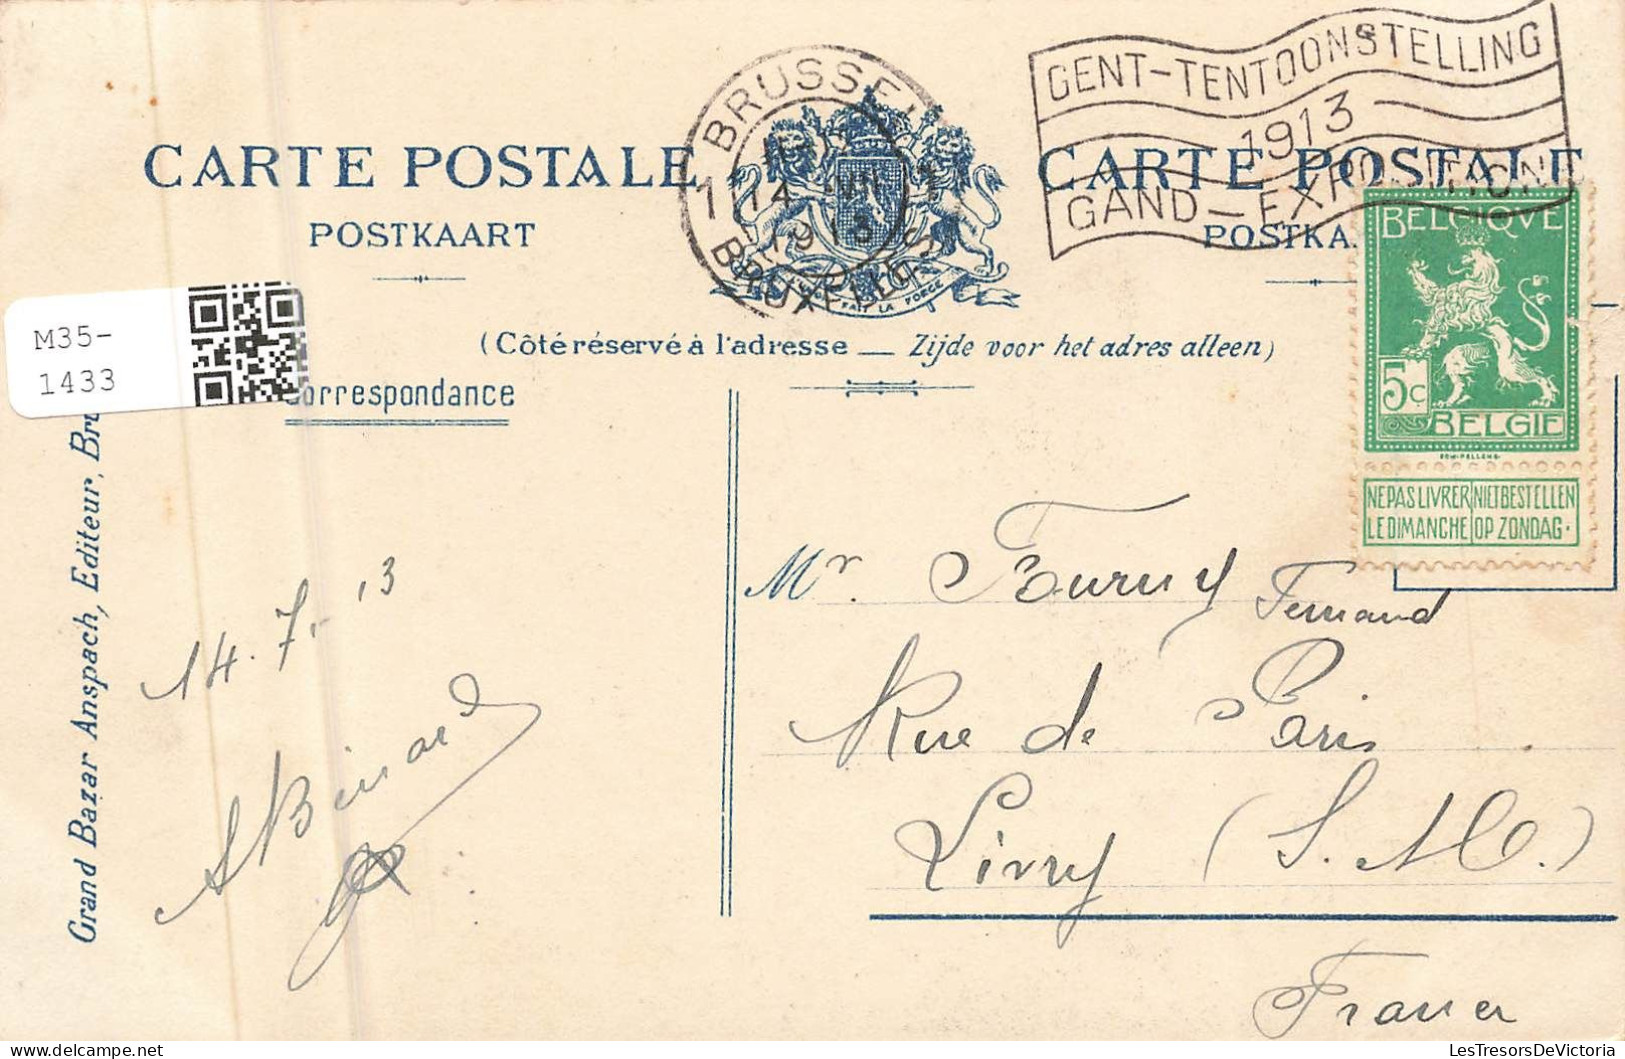 GENT-TENTOONSTELLING
1913
GAND-EXPOSITION
BRUSSEL
1 14 VII
1913
BRUXELLES
CARTE POSTALE
POSTKAART
CARTE POSTALE
POSTKA
FAIT LA FORCE
(Côté réservé à l'adresse — Zijde voor het adres alleen)
M35-
1433
Correspondance
BELGIQVE
5c
BELGIE
NE PAS LIVRER NIET BESTELLEN
LE DIMANCHE OP ZONDAG.
Grand Bazar Anspach, Editeur, Bru
14.7.-13
Mr. Fernand
Rue de Paris
Livry (S. & O.)
France
LesTresorsDeVictoria